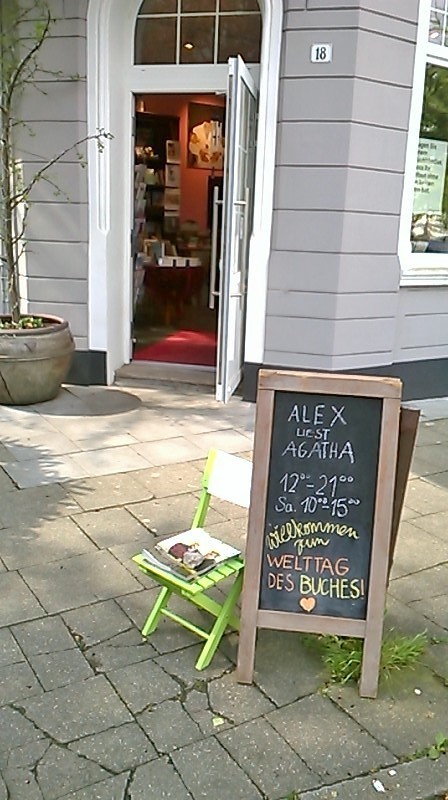 18
ALEX
LIEST
AGATHA
12⁰⁰-21⁰⁰
Sa. 10⁰⁰-15⁰⁰
Willkommen
zum
WELTTAG
DES BUCHES!